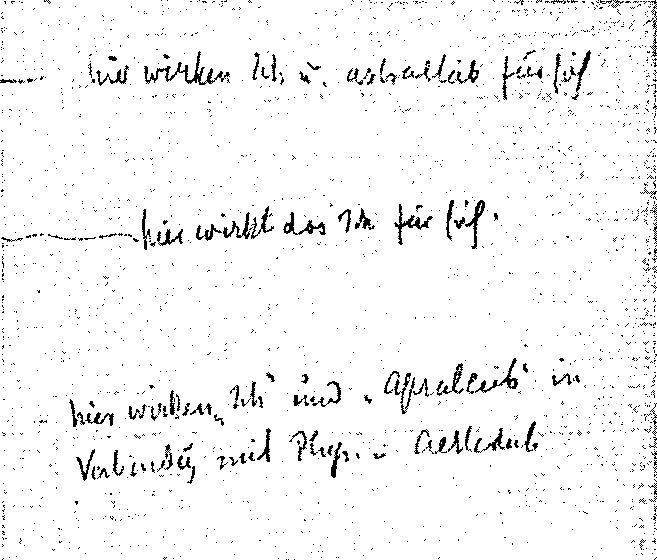 hier wirken Ich u. astralleib für sich
hier wirkt das Ich für sich.
hier wirken „Ich“ und „Astralleib“ in
Verbindung mit Phys. u Aetherleib